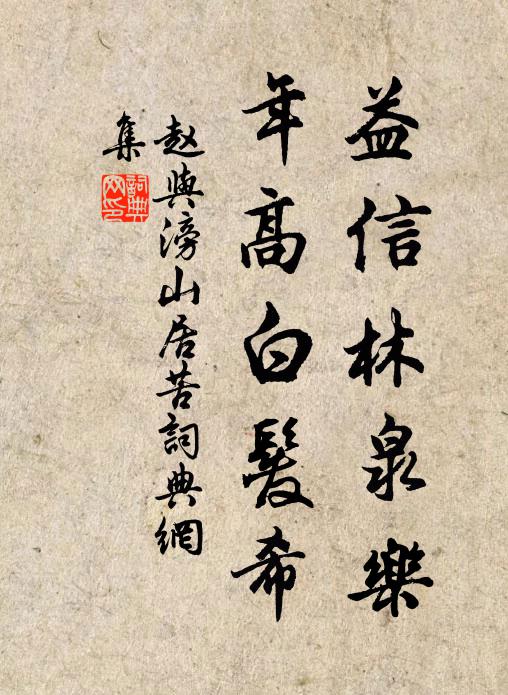 益信林泉樂
年高白髮希
赵與滂山居苦詞典網
集
詞典
网印